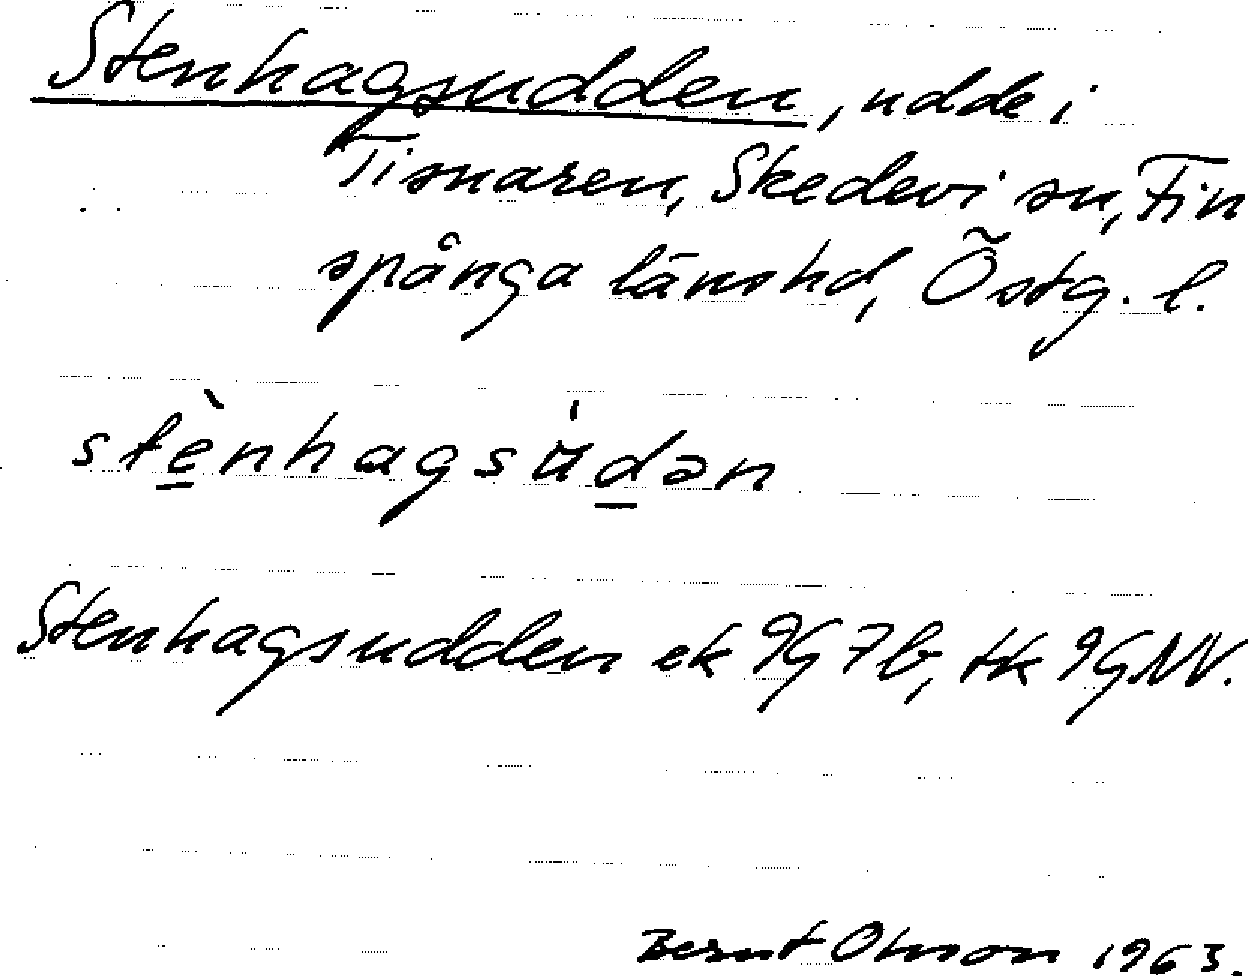 Stenhagsudden, udde i
Tisnaren, Skedevi sn, Fin
spånga länshd, Östg. l.
stè̱nhagsu̇d̲ən
Stenhagsudden ek 9G 7b, tk 9G NV.
Bernt Olsson 1963.